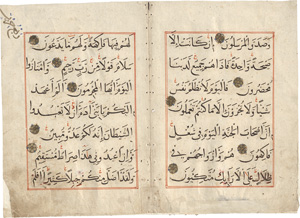 وصدق المرسلون إن كانت إلا
صيحة واحدة فإذا هم جميع لدينا
محضرون فاليوم لا تظلم نفس
شيئا ولا تجزون إلا ما كنتم تعملون
إن أصحاب الجنة اليوم في شغل
فاكهون هم وأزواجهم في
ظلال على الأرائك متكئون
لهم فيها فاكهة ولهم ما يدعون
سلام قولا من رب رحيم وامتازوا
اليوم أيها المجرمون ألم أعهد
إليكم يا بني آدم أن لا تعبدوا
الشيطان إنه لكم عدو مبين
وأن اعبدوني هذا صراط مستقيم
ولقد أضل منكم جبلا كثيرا أفلم